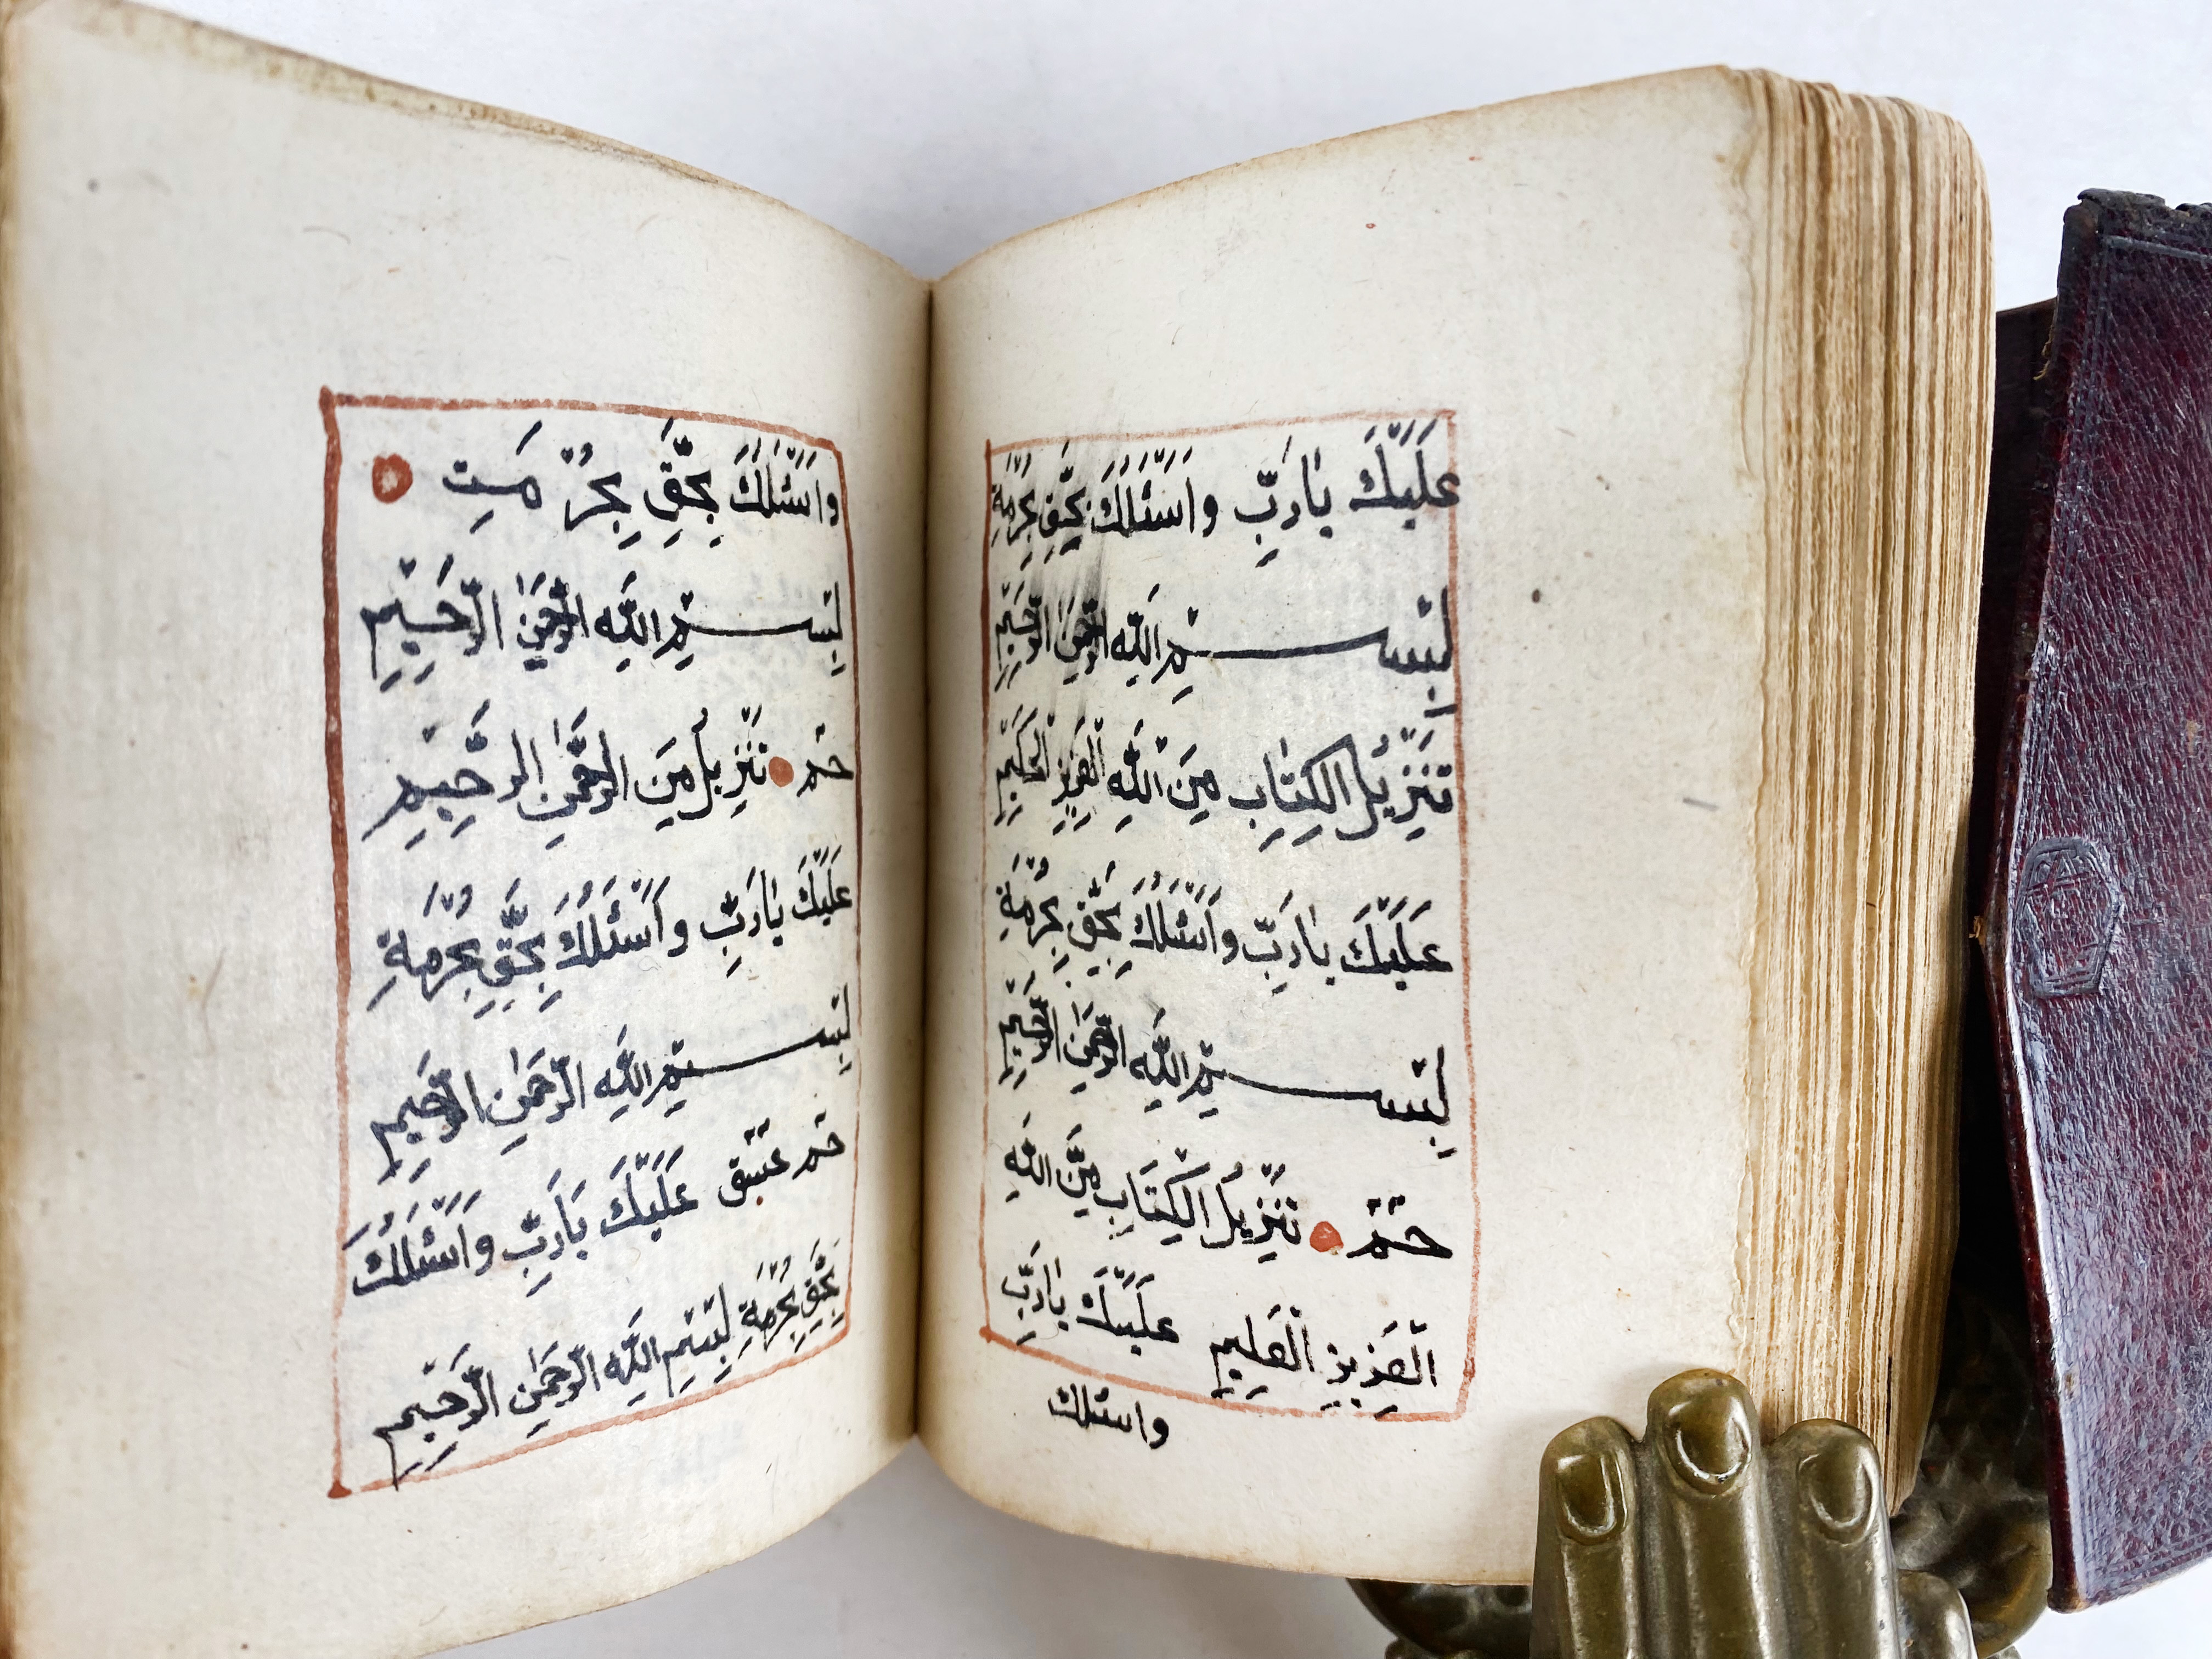 عَلَيْكَ يَارَبِّ وَاَسْئَلُكَ بِحَقِّ بِحُرْمَةِ
بِسْمِ اللَّهِ الرَّحْمٰنِ الرَّحِيْمِ
تَنْزِيْلُ الْكِتَابِ مِنَ اللَّهِ الْعَزِيْزِ الْحَكِيْمِ
عَلَيْكَ يَارَبِّ وَاَسْئَلُكَ بِحَقِّ بِحُرْمَةِ
بِسْمِ اللَّهِ الرَّحْمٰنِ الرَّحِيْمِ
حٰمْ تَنْزِيْلُ الْكِتَابِ مِنَ اللَّهِ
الْعَزِيْزِ الْعَلِيْمِ عَلَيْكَ يَارَبِّ
واسئلك
وَاَسْئَلُكَ بِحَقِّ بِحُرْ مَتِ
بِسْمِ اللَّهِ الرَّحْمٰنِ الرَّحِيْمِ
حٰمْ تَنْزِيْلُ مِنَ الرَّحْمٰنِ الرَّحِيْمِ
عَلَيْكَ يَارَبِّ وَاَسْئَلُكَ بِحَقِّ بِحُرْمَةِ
بِسْمِ اللَّهِ الرَّحْمٰنِ الرَّحِيْمِ
حٰمْ عسق عَلَيْكَ يَارَبِّ وَاَسْئَلُكَ
بِحَقِّ بِحُرْمَةِ بِسْمِ اللَّهِ الرَّحْمٰنِ الرَّحِيْمِ